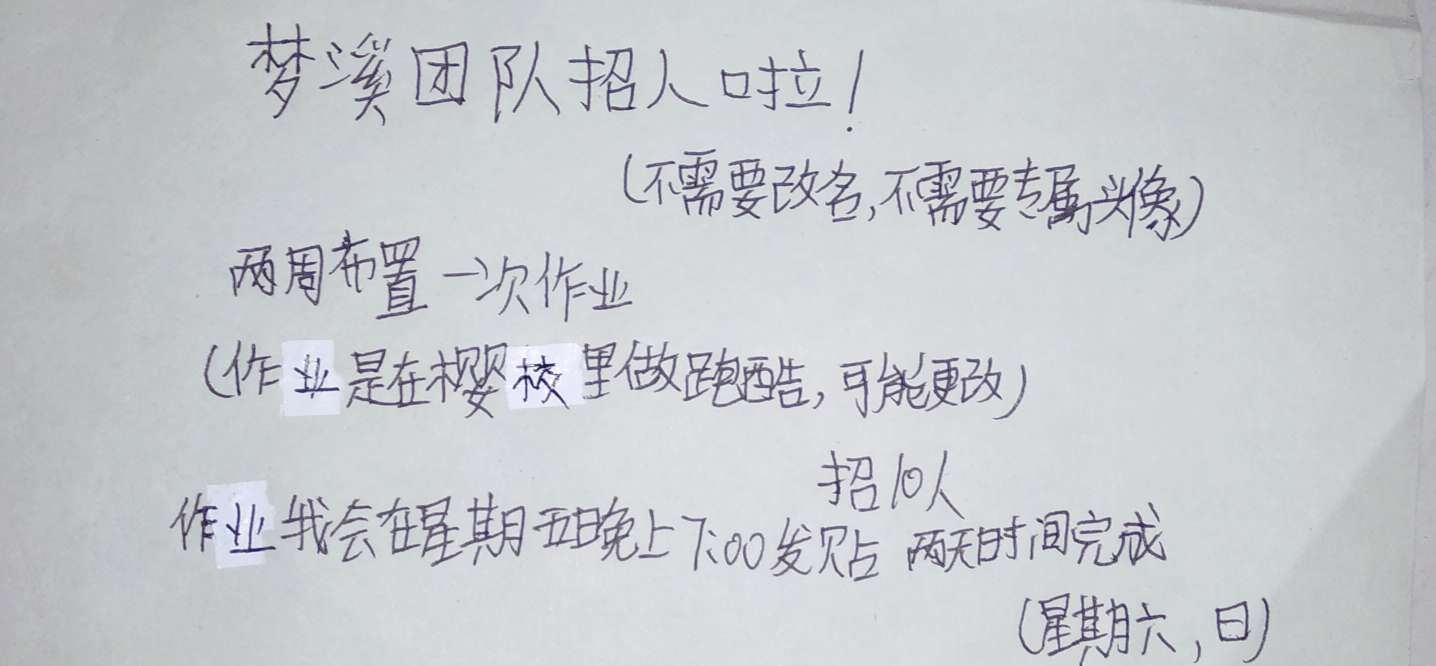 梦溪团队招人啦!
(不需要改名,不需要专属头像)
两周布置一次作业
(作业是在樱校里做跑酷,可能更改)
招10人
作业我会在星期五晚上7:00发贴 两天时间完成
(星期六,日)